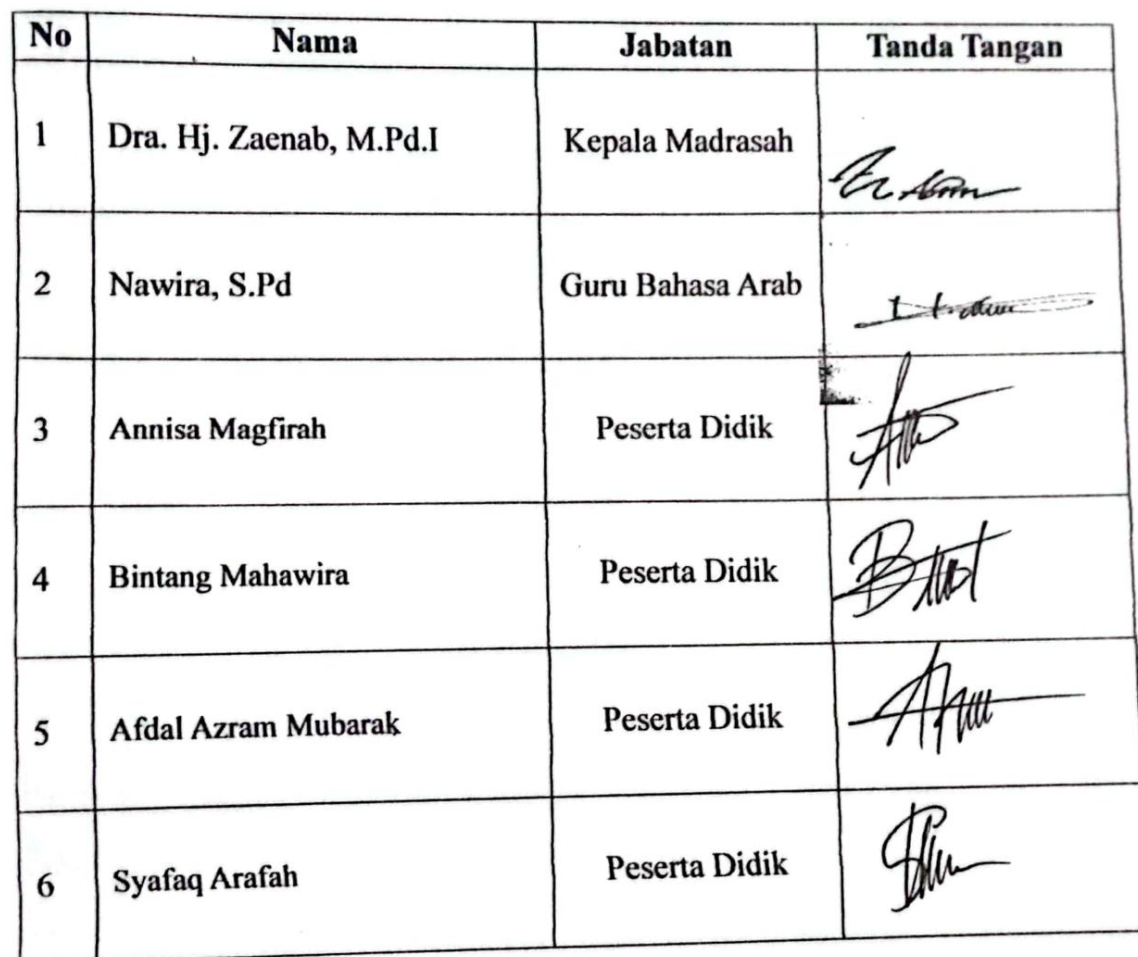 No Nama Jabatan Tanda Tangan
1 Dra. Hj. Zaenab, M.Pd.I Kepala Madrasah
2 Nawira, S.Pd Guru Bahasa Arab
3 Annisa Magfirah Peserta Didik
4 Bintang Mahawira Peserta Didik
5 Afdal Azram Mubarak Peserta Didik
6 Syafaq Arafah Peserta Didik